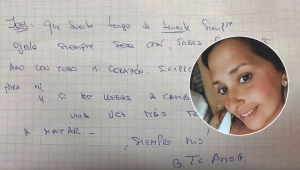 José. Que suerte tengo de tenerte siempre
ojala siempre sea así, sabes
Amo con todo mi corazón. Siempre
para mi,
y si me llegas a
una vez más te
a matar.-
¡Siempre mío
TE AMO